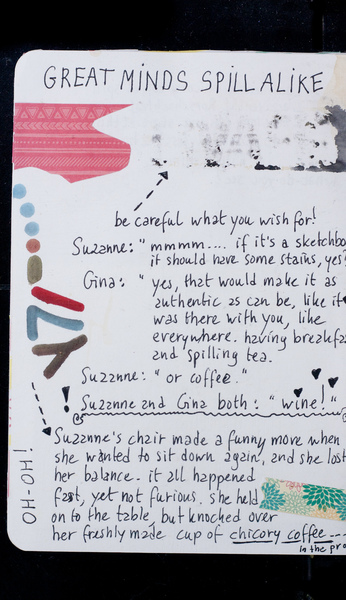 GREAT MINDS SPILL ALIKE
be careful what you wish for!
Suzanne: "mmmm.... if it's a
it should have some stains, yes?
Gina: " yes, that would make it as
authentic as can be, like it
was there with you, like
everywhere. having
and spilling tea.
Suzanne: " or coffee."
! Suzanne and Gina both: " wine!"
Suzanne's chair made a funny move when
she wanted to sit down again, and she lost
her balance. it all happened
fast, yet not furious. she held
on to the table, but knocked over
her freshly made cup of chicory coffee ---
in the
OH-OH!